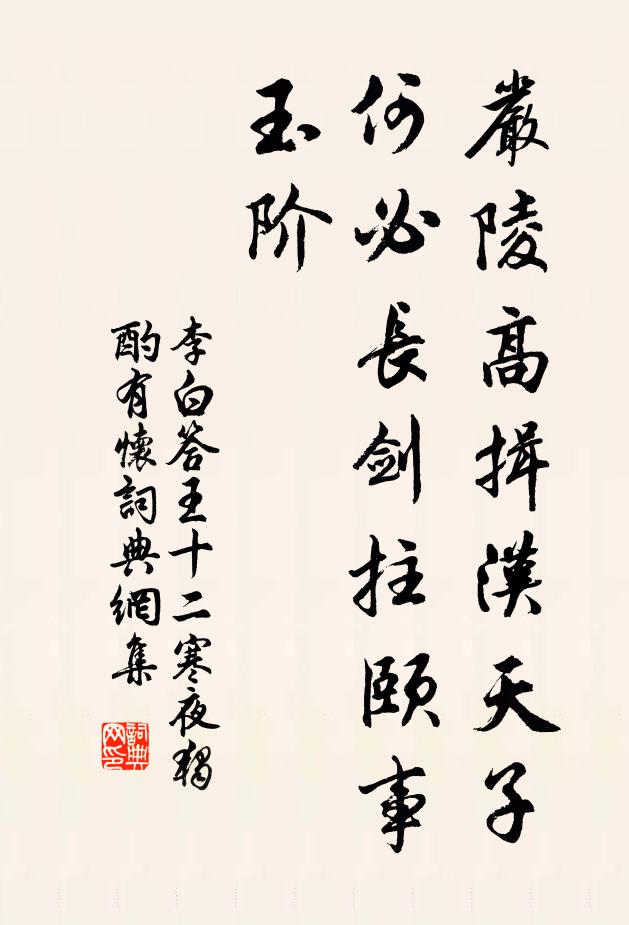 嚴陵高揖漢天子
何必長劍拄頤事
玉阶
李白答王十二寒夜獨
酌有懷詞典網集
詞典
网印